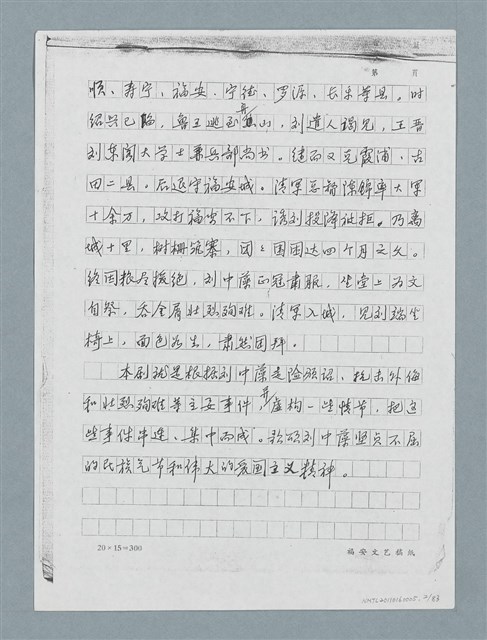 第 页
顺、寿宁、福安、宁德、罗源、长乐等县。时
绍兴已陷，鲁王逃到舟山，刘遣人谒见，王晋
刘东阁大学士兼兵部尚书。继而又克霞浦、古
田二县。后退守福安城。清军总督陈锦率大军
十余万，攻打福安不下，诱刘投降被拒。乃离
城十里，树栅筑寨，团团围困达四个月之久。
终因粮尽援绝，刘中藻正冠肃服，坐堂上为文
自祭，吞金屑壮烈殉难。清军入城，见刘端坐
椅上，面色如生，肃然团拜。
本剧就是根据刘中藻走险颁诏、抗击外侮
和壮烈殉难等主要事件，并虚构一些情节，把这
些事件串连、集中而成。歌颂刘中藻坚贞不屈
的民族气节和伟大的爱国主义精神。
20×15=300 福安文艺稿纸